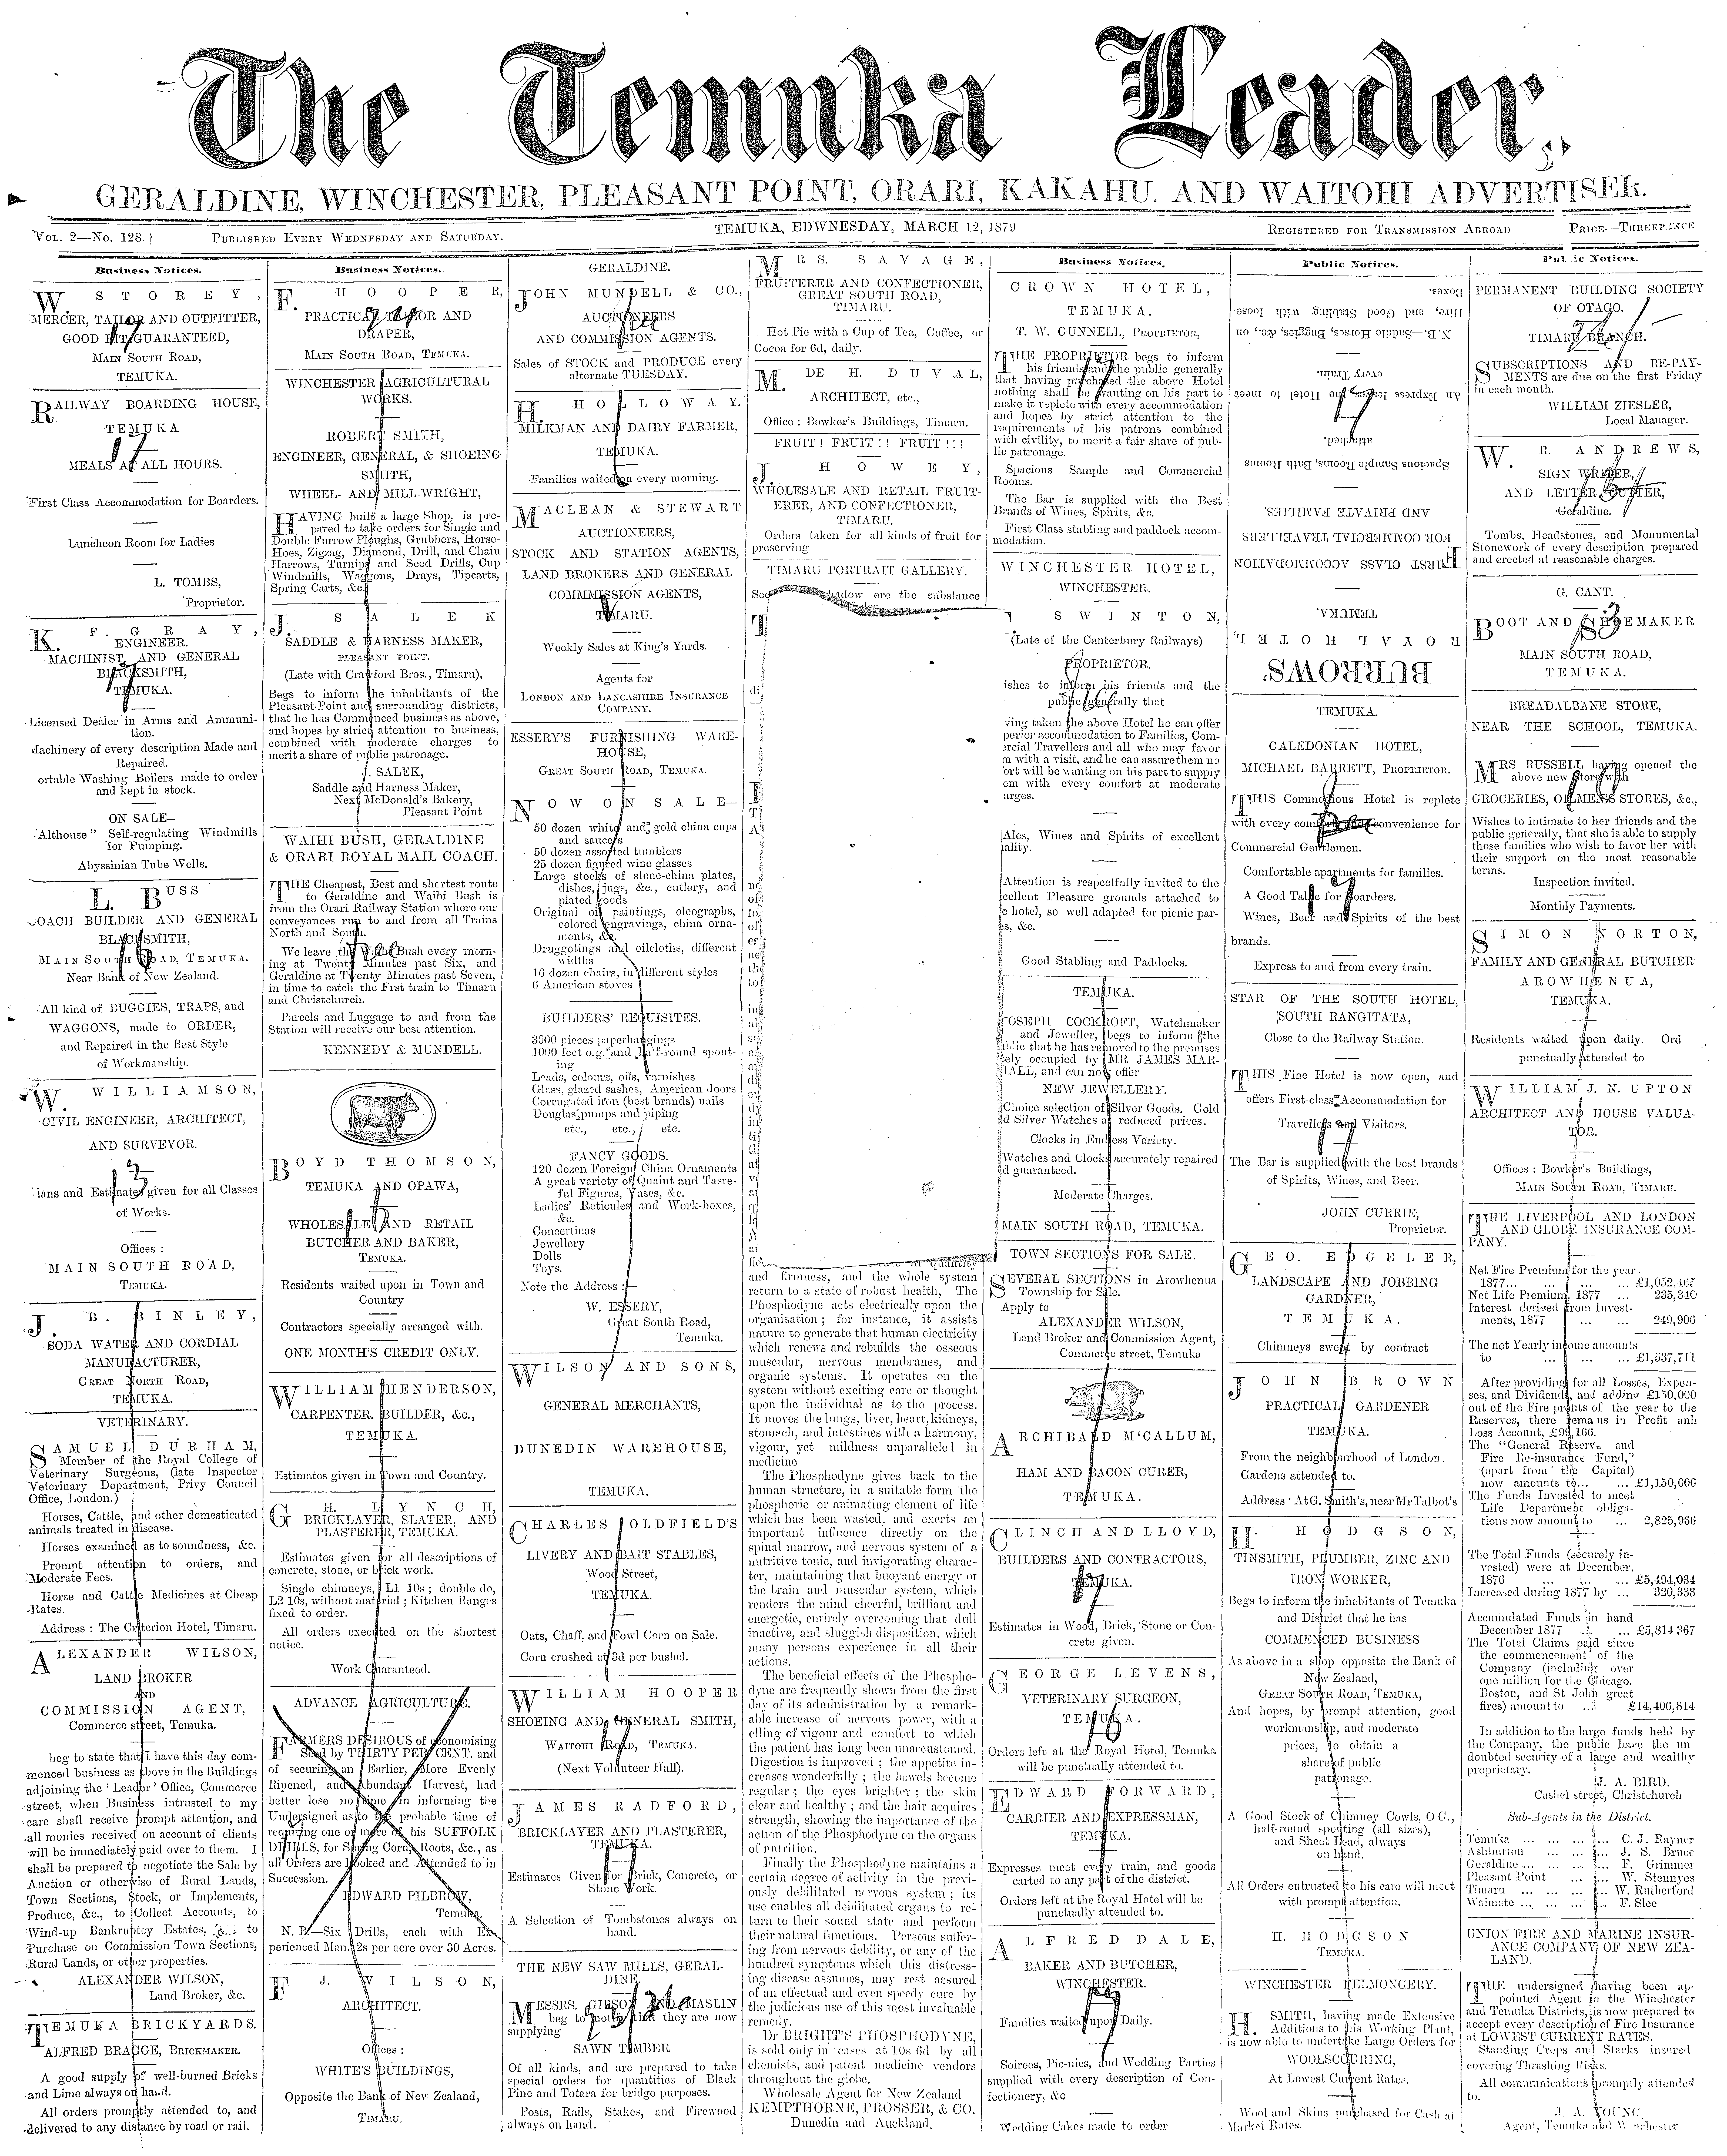 The Temuka Leader,
GERALDINE, WINCHESTER, PLEASANT POINT, ORARI, KAKAHU, AND WAITOHI ADVERTISER.
VOL. 2—No. 128.
PUBLISHED EVERY WEDNESDAY AND SATURDAY.
TEMUKA, EDWNESDAY, MARCH 12, 1879
REGISTERED FOR TRANSMISSION ABROAD
PRICE—THREEPENCE
Business Notices.
W. STOREY,
MERCER, TAILOR AND OUTFITTER,
GOOD FIT GUARANTEED,
MAIN SOUTH ROAD,
TEMUKA.
RAILWAY BOARDING HOUSE,
TEMUKA
MEALS AT ALL HOURS.
First Class Accommodation for Boarders.
Luncheon Room for Ladies
L. TOMBS,
Proprietor.
K. F. GRAY,
ENGINEER.
MACHINIST, AND GENERAL
BLACKSMITH,
TEMUKA.
Licensed Dealer in Arms and Ammuni-
tion.
Machinery of every description Made and
Repaired.
ortable Washing Boilers made to order
and kept in stock.
ON SALE—
Althouse" Self-regulating Windmills
for Pumping.
Abyssinian Tube Wells.
L. BUSS
COACH BUILDER AND GENERAL
BLACKSMITH,
MAIN SOUTH ROAD, TEMUKA.
Near Bank of New Zealand.
All kind of BUGGIES, TRAPS, and
WAGGONS, made to ORDER,
and Repaired in the Best Style
of Workmanship.
W. WILLIAMSON,
CIVIL ENGINEER, ARCHITECT,
AND SURVEYOR.
13
lans and Estimates given for all Classes
of Works.
Offices :
MAIN SOUTH ROAD,
TEMUKA.
J. B. BINLEY,
SODA WATER AND CORDIAL
MANUFACTURER,
GREAT NORTH ROAD,
TEMUKA.
VETERINARY.
SAMUEL DURHAM,
Member of the Royal College of
Veterinary Surgeons, (late Inspector
Veterinary Department, Privy Council
Office, London.)
Horses, Cattle, and other domesticated
animals treated in disease.
Horses examined as to soundness, &c.
Prompt attention to orders, and
Moderate Fees.
Horse and Cattle Medicines at Cheap
Rates.
Address : The Criterion Hotel, Timaru.
ALEXANDER WILSON,
LAND BROKER
AND
COMMISSION AGENT,
Commerce street, Temuka.
beg to state that I have this day com-
menced business as above in the Buildings
adjoining the 'Leader' Office, Commerce
street, when Business intrusted to my
care shall receive prompt attention, and
all monies received on account of clients
will be immediately paid over to them. I
shall be prepared to negotiate the Sale by
Auction or otherwise of Rural Lands,
Town Sections, Stock, or Implements,
Produce, &c., to Collect Accounts, to
Wind-up Bankruptcy Estates, &c. to
Purchase on Commission Town Sections,
Rural Lands, or other properties.
ALEXANDER WILSON,
Land Broker, &c.
TEMUKA BRICKYARDS.
ALFRED BRAGGE, BRICKMAKER.
A good supply of well-burned Bricks
and Lime always on hand.
All orders promptly attended to, and
delivered to any distance by road or rail.
Business Notices.
F. HOOPER,
PRACTICAL TAILOR AND
DRAPER,
MAIN SOUTH ROAD, TEMUKA.
WINCHESTER AGRICULTURAL
WORKS.
ROBERT SMITH,
ENGINEER, GENERAL, & SHOEING
SMITH,
WHEEL- AND MILL-WRIGHT,
HAVING built a large Shop, is pre-
pared to take orders for Single and
Double Furrow Ploughs, Grubbers, Horse-
Hoes, Zigzag, Diamond, Drill, and Chain
Harrows, Turnip and Seed Drills, Cup
Windmills, Waggons, Drays, Tipcarts,
Spring Carts, &c.
J. SALEK
SADDLE & HARNESS MAKER,
PLEASANT POINT.
(Late with Crawford Bros., Timaru),
Begs to inform the inhabitants of the
Pleasant Point and surrounding districts,
that he has Commenced business as above,
and hopes by strict attention to business,
combined with moderate charges to
merit a share of public patronage.
J. SALEK,
Saddle and Harness Maker,
Next McDonald's Bakery,
Pleasant Point
WAIHI BUSH, GERALDINE
& ORARI ROYAL MAIL COACH.
THE Cheapest, Best and shortest route
to Geraldine and Waihi Bush is
from the Orari Railway Station where our
conveyances run to and from all Trains
North and South.
We leave the Waihi Bush every morn-
ing at Twenty Minutes past Six, and
Geraldine at Twenty Minutes past Seven,
in time to catch the Frst train to Timaru
and Christchurch.
Parcels and Luggage to and from the
Station will receive our best attention.
KENNEDY & MUNDELL.
BOYD THOMSON,
TEMUKA AND OPAWA,
WHOLESALE AND RETAIL
BUTCHER AND BAKER,
TEMUKA.
Residents waited upon in Town and
Country
Contractors specially arranged with.
ONE MONTH'S CREDIT ONLY.
WILLIAM HENDERSON,
CARPENTER, BUILDER, &c.,
TEMUKA.
Estimates given in Town and Country.
G. H. LYNCH,
BRICKLAYER, SLATER, AND
PLASTERER, TEMUKA.
Estimates given for all descriptions of
concrete, stone, or brick work.
Single chimneys, L1 10s ; double do,
L2 10s, without material ; Kitchen Ranges
fixed to order.
All orders executed on the shortest
notice.
Work Guaranteed.
ADVANCE AGRICULTURE.
FARMERS DESIROUS of economising
Seed by THIRTY PER CENT. and
of securing an Earlier, More Evenly
Ripened, and Abundant Harvest, had
better lose no time in informing the
Undersigned as to the probable time of
requiring one or more of his SUFFOLK
DRILLS, for Spring Corn, Roots, &c., as
all Orders are Booked and Attended to in
Succession.
EDWARD PILBROW,
Temuka.
N. B.—Six Drills, each with Ex-
perienced Man. 2s per acre over 30 Acres.
F. J. WILSON,
ARCHITECT.
Offices :
WHITE'S BUILDINGS,
Opposite the Bank of New Zealand,
TIMARU.
GERALDINE.
JOHN MUNDELL & CO.,
AUCTIONEERS
AND COMMISSION AGENTS.
Sales of STOCK and PRODUCE every
alternate TUESDAY.
H. HOLLOWAY.
MILKMAN AND DAIRY FARMER,
TEMUKA.
Families waited on every morning.
MACLEAN & STEWART
AUCTIONEERS,
STOCK AND STATION AGENTS,
LAND BROKERS AND GENERAL
COMMMISSION AGENTS,
TIMARU.
Weekly Sales at King's Yards.
Agents for
LONDON AND LANCASHIRE INSURANCE
COMPANY.
ESSERY'S FURNISHING WARE-
HOUSE,
GREAT SOUTH ROAD, TEMUKA.
NOW ON SALE—
50 dozen white and gold china cups
and saucers
50 dozen assorted tumblers
25 dozen figured wine glasses
Large stocks of stone-china plates,
dishes, jugs, &c., cutlery, and
plated goods
Original oil paintings, oleographs,
colored engravings, china orna-
ments, &c.
Druggetings and oilcloths, different
widths
16 dozen chairs, in different styles
6 American stoves
BUILDERS' REQUISITES.
3000 pieces paperhangings
1000 feet o.g. and half-round spout-
ing
Leads, colours, oils, varnishes
Glass, glazed sashes, American doors
Corrugated iron (best brands) nails
Douglas pumps and piping
etc., etc., etc.
FANCY GOODS.
120 dozen Foreign China Ornaments
A great variety of Quaint and Taste-
ful Figures, Vases, &c.
Ladies' Reticules and Work-boxes,
&c.
Concertinas
Jewellery
Dolls
Toys.
Note the Address :—
W. ESSERY,
Great South Road,
Temuka.
WILSON AND SONS,
GENERAL MERCHANTS,
DUNEDIN WAREHOUSE,
TEMUKA.
CHARLES OLDFIELD'S
LIVERY AND BAIT STABLES,
Wood Street,
TEMUKA.
Oats, Chaff, and Fowl Corn on Sale.
Corn crushed at 3d per bushel.
WILLIAM HOOPER
SHOEING AND GENERAL SMITH,
WAITOHI ROAD, TEMUKA.
(Next Volunteer Hall).
JAMES RADFORD,
BRICKLAYER AND PLASTERER,
TEMUKA.
Estimates Given for Brick, Concrete, or
Stone Work.
A Selection of Tombstones always on
hand.
THE NEW SAW MILLS, GERAL-
DINE.
MESSRS. GIBSON AND MASLIN
beg to notify that they are now
supplying
SAWN TIMBER
Of all kinds, and are prepared to take
special orders for quantities of Black
Pine and Totara for bridge purposes.
Posts, Rails, Stakes, and Firewood
always on hand.
MRS. SAVAGE,
FRUITERER AND CONFECTIONER,
GREAT SOUTH ROAD,
TIMARU.
Hot Pie with a Cup of Tea, Coffee, or
Cocoa for 6d, daily.
M. DE H. DUVAL,
ARCHITECT, etc.,
Office : Bowker's Buildings, Timaru.
FRUIT! FRUIT!! FRUIT!!!
J. HOWEY,
WHOLESALE AND RETAIL FRUIT-
ERER, AND CONFECTIONER,
TIMARU.
Orders taken for all kinds of fruit for
preserving
TIMARU PORTRAIT GALLERY.
shadow ere the substance
and firmness, and the whole system
return to a state of robust health, The
Phosphodyne acts electrically upon the
organisation ; for instance, it assists
nature to generate that human electricity
which renews and rebuilds the osseous
muscular, nervous membranes, and
organic systems. It operates on the
system without exciting care or thought
upon the individual as to the process.
It moves the lungs, liver, heart, kidneys,
stomach, and intestines with a harmony,
vigour, yet mildness unparalleled in
medicine
The Phosphodyne gives back to the
human structure, in a suitable form the
phosphoric or animating element of life
which has been wasted, and exerts an
important influence directly on the
spinal marrow, and nervous system of a
nutritive tonic, and invigorating charac-
ter, maintaining that buoyant energy of
the brain and muscular system, which
renders the mind cheerful, brilliant and
energetic, entirely overcoming that dull
inactive, and sluggish disposition. which
many persons experience in all their
actions.
The beneficial effects of the Phospho-
dyne are frequently shown from the first
day of its administration by a remark-
able increase of nervous power, with a
elling of vigour and comfort to which
the patient has long been unaccustomed.
Digestion is improved ; the appetite in-
creases wonderfully ; the bowels become
regular ; the eyes brighter ; the skin
clear and healthy ; and the hair acquires
strength, showing the importance of the
action of the Phosphodyne on the organs
of nutrition.
Finally the Phosphodyne maintains a
certain degree of activity in the previ-
ously debilitated nervous system ; its
use enables all debilitated organs to re-
turn to their sound state and perform
their natural functions. Persons suffer-
ing from nervous debility, or any of the
hundred symptoms which this distress-
ing disease assumes, may rest assured
of an effectual and even speedy cure by
the judicious use of this most invaluable
remedy.
Dr BRIGHT'S PHOSPHODYNE,
is sold only in cases at 10s 6d by all
chemists, and patent medicine vendors
throughout the globe.
Wholesale Agent for New Zealand
KEMPTHORNE, PROSSER, & CO.
Dunedin and Auckland.
Business Notices.
CROWN HOTEL,
TEMUKA.
T. W. GUNNELL, PROPRIETOR,
THE PROPRIETOR begs to inform
his friends and the public generally
that having purchased the above Hotel
nothing shall be wanting on his part to
make it replete with every accommodation
and hopes by strict attention to the
requirements of his patrons combined
with civility, to merit a fair share of pub-
lic patronage.
Spacious Sample and Commercial
Rooms.
The Bar is supplied with the Best
Brands of Wines, Spirits, &c.
First Class stabling and paddock accom-
modation.
WINCHESTER HOTEL,
WINCHESTER.
SWINTON,
(Late of the Canterbury Railways)
PROPRIETOR.
ishes to inform his friends and the
public generally that
ving taken the above Hotel he can offer
perior accommodation to Families, Com-
rcial Travellers and all who may favor
m with a visit, and he can assure them no
ort will be wanting on his part to supply
em with every comfort at moderate
arges.
Ales, Wines and Spirits of excellent
ality.
Attention is respectfully invited to the
cellent Pleasure grounds attached to
e hotel, so well adapted for picnic par-
s, &c.
Good Stabling and Paddocks.
TEMUKA.
JOSEPH COCKROFT, Watchmaker
and Jeweller, begs to inform the
blic that he has removed to the premises
ely occupied by MR JAMES MAR-
HALL, and can now offer
NEW JEWELLERY.
Choice selection of Silver Goods. Gold
d Silver Watches at reduced prices.
Clocks in Endless Variety.
Watches and Clocks accurately repaired
d guaranteed.
Moderate Charges.
MAIN SOUTH ROAD, TEMUKA.
TOWN SECTIONS FOR SALE.
SEVERAL SECTIONS in Arowhenua
Township for Sale.
Apply to
ALEXANDER WILSON,
Land Broker and Commission Agent,
Commerce street, Temuka
ARCHIBALD M'CALLUM,
HAM AND BACON CURER,
TEMUKA.
CLINCH AND LLOYD,
BUILDERS AND CONTRACTORS,
TEMUKA.
Estimates in Wood, Brick, Stone or Con-
crete given.
GEORGE LEVENS,
VETERINARY SURGEON,
TEMUKA.
Orders left at the Royal Hotel, Temuka
will be punctually attended to.
EDWARD FORWARD,
CARRIER AND EXPRESSMAN,
TEMUKA.
Expresses meet every train, and goods
carted to any part of the district.
Orders left at the Royal Hotel will be
punctually attended to.
ALFRED DALE,
BAKER AND BUTCHER,
WINCHESTER.
Families waited upon Daily.
Soirees, Pic-nics, and Wedding Parties
supplied with every description of Con-
fectionery, &c
Wedding Cakes made to order
Public Notices.
BURROWS'
ROYAL HOTEL,
TEMUKA.
FIRST CLASS ACCOMMODATION
FOR COMMERCIAL TRAVELLERS
AND PRIVATE FAMILIES.
Spacious Sample Rooms, Bath Rooms
attached.
An Express leaves the Hotel to meet
every Train.
N.B.—Saddle Horses, Buggies, &c., on
Hire, and Good Stabling with loose
Boxes.
TEMUKA.
CALEDONIAN HOTEL,
MICHAEL BARRETT, PROPRIETOR.
THIS Commodious Hotel is replete
with every comfort and convenience for
Commercial Gentlemen.
Comfortable apartments for families.
A Good Table for Boarders.
Wines, Beer and Spirits of the best
brands.
Express to and from every train.
STAR OF THE SOUTH HOTEL,
SOUTH RANGITATA,
Close to the Railway Station.
THIS Fine Hotel is now open, and
offers First-class Accommodation for
Travellers and Visitors.
The Bar is supplied with the best brands
of Spirits, Wines, and Beer.
JOHN CURRIE,
Proprietor.
GEO. EDGELER,
LANDSCAPE AND JOBBING
GARDNER,
TEMUKA.
Chimneys swept by contract
JOHN BROWN
PRACTICAL GARDENER
TEMUKA.
From the neighbourhood of London.
Gardens attended to.
Address : At G. Smith's, near Mr Talbot's
H. HODGSON,
TINSMITH, PLUMBER, ZINC AND
IRON WORKER,
Begs to inform the inhabitants of Temuka
and District that he has
COMMENCED BUSINESS
As above in a shop opposite the Bank of
New Zealand,
GREAT SOUTH ROAD, TEMUKA,
And hopes, by prompt attention, good
workmanship, and moderate
prices, to obtain a
share of public
patronage.
A Good Stock of Chimney Cowls, O.G.,
half-round spouting (all sizes),
and Sheet Lead, always
on hand.
All Orders entrusted to his care will meet
with prompt attention.
H. HODGSON
TEMUKA.
WINCHESTER FELMONGERY.
H. SMITH, having made Extensive
Additions to his Working Plant,
is now able to undertake Large Orders for
WOOLSCOURING,
At Lowest Current Rates.
Wool and Skins purchased for Cash at
Market Rates.
Public Notices.
PERMANENT BUILDING SOCIETY
OF OTAGO.
TIMARU BRANCH.
SUBSCRIPTIONS AND RE-PAY-
MENTS are due on the first Friday
in each month.
WILLIAM ZIESLER,
Local Manager.
W. R. ANDREWS,
SIGN WRITER,
AND LETTER CUTTER,
Geraldine.
Tombs, Headstones, and Monumental
Stonework of every description prepared
and erected at reasonable charges.
G. CANT.
BOOT AND SHOEMAKER
MAIN SOUTH ROAD,
TEMUKA.
BREADALBANE STORE,
NEAR THE SCHOOL, TEMUKA.
MRS RUSSELL having opened the
above new Store with
GROCERIES, OILMENS STORES, &c.,
Wishes to intimate to her friends and the
public generally, that she is able to supply
those families who wish to favor her with
their support on the most reasonable
terms.
Inspection invited.
Monthly Payments.
SIMON NORTON,
FAMILY AND GENERAL BUTCHER
AROWHENUA,
TEMUKA.
Residents waited upon daily. Ord
punctually attended to
WILLIAM J. N. UPTON
ARCHITECT AND HOUSE VALUA-
TOR.
Offices : Bowker's Buildings,
MAIN SOUTH ROAD, TIMARU.
THE LIVERPOOL AND LONDON
AND GLOBE INSURANCE COM-
PANY.
Net Fire Premium for the year
1877... ... ... ... £1,052,467
Net Life Premium, 1877 ... 235,340
Interest derived from Invest-
ments, 1877 ... ... 249,906
The net Yearly income amounts
to ... ... ... £1,537,711
After providing for all Losses, Expen-
ses, and Dividends, and adding £150,000
out of the Fire profits of the year to the
Reserves, there remains in Profit and
Loss Account, £99,166.
The "General Reserve and
Fire Re-insurance Fund,"
(apart from the Capital)
now amounts to... ... £1,150,006
The Funds Invested to meet
Life Department obliga-
tions now amount to ... 2,825,966
The Total Funds (securely in-
vested) were at December,
1876 ... ... ... £5,494,034
Increased during 1877 by ... 320,333
Accumulated Funds in hand
December 1877 ... ... £5,814,367
The Total Claims paid since
the commencement of the
Company (including over
one million for the Chicago,
Boston, and St John great
fires) amount to ... £14,406,814
In addition to the large funds held by
the Company, the public have the un
doubted security of a large and wealthy
proprietary.
J. A. BIRD.
Cashel street, Christchurch
Sub-Agents in the District.
Temuka ... ... ... C. J. Rayner
Ashburton ... ... J. S. Bruce
Geraldine ... ... ... F. Grimmer
Pleasant Point ... ... W. Stennyes
Timaru ... ... ... W. Rutherford
Waimate ... ... ... F. Slee
UNION FIRE AND MARINE INSUR-
ANCE COMPANY OF NEW ZEA-
LAND.
THE undersigned having been ap-
pointed Agent in the Winchester
and Temuka Districts, is now prepared to
accept every description of Fire Insurance
at LOWEST CURRENT RATES.
Standing Crops and Stacks insured
covering Thrashing Risks.
All communications promptly attended
to.
J. A. YOUNG,
Agent, Temuka and Winchester